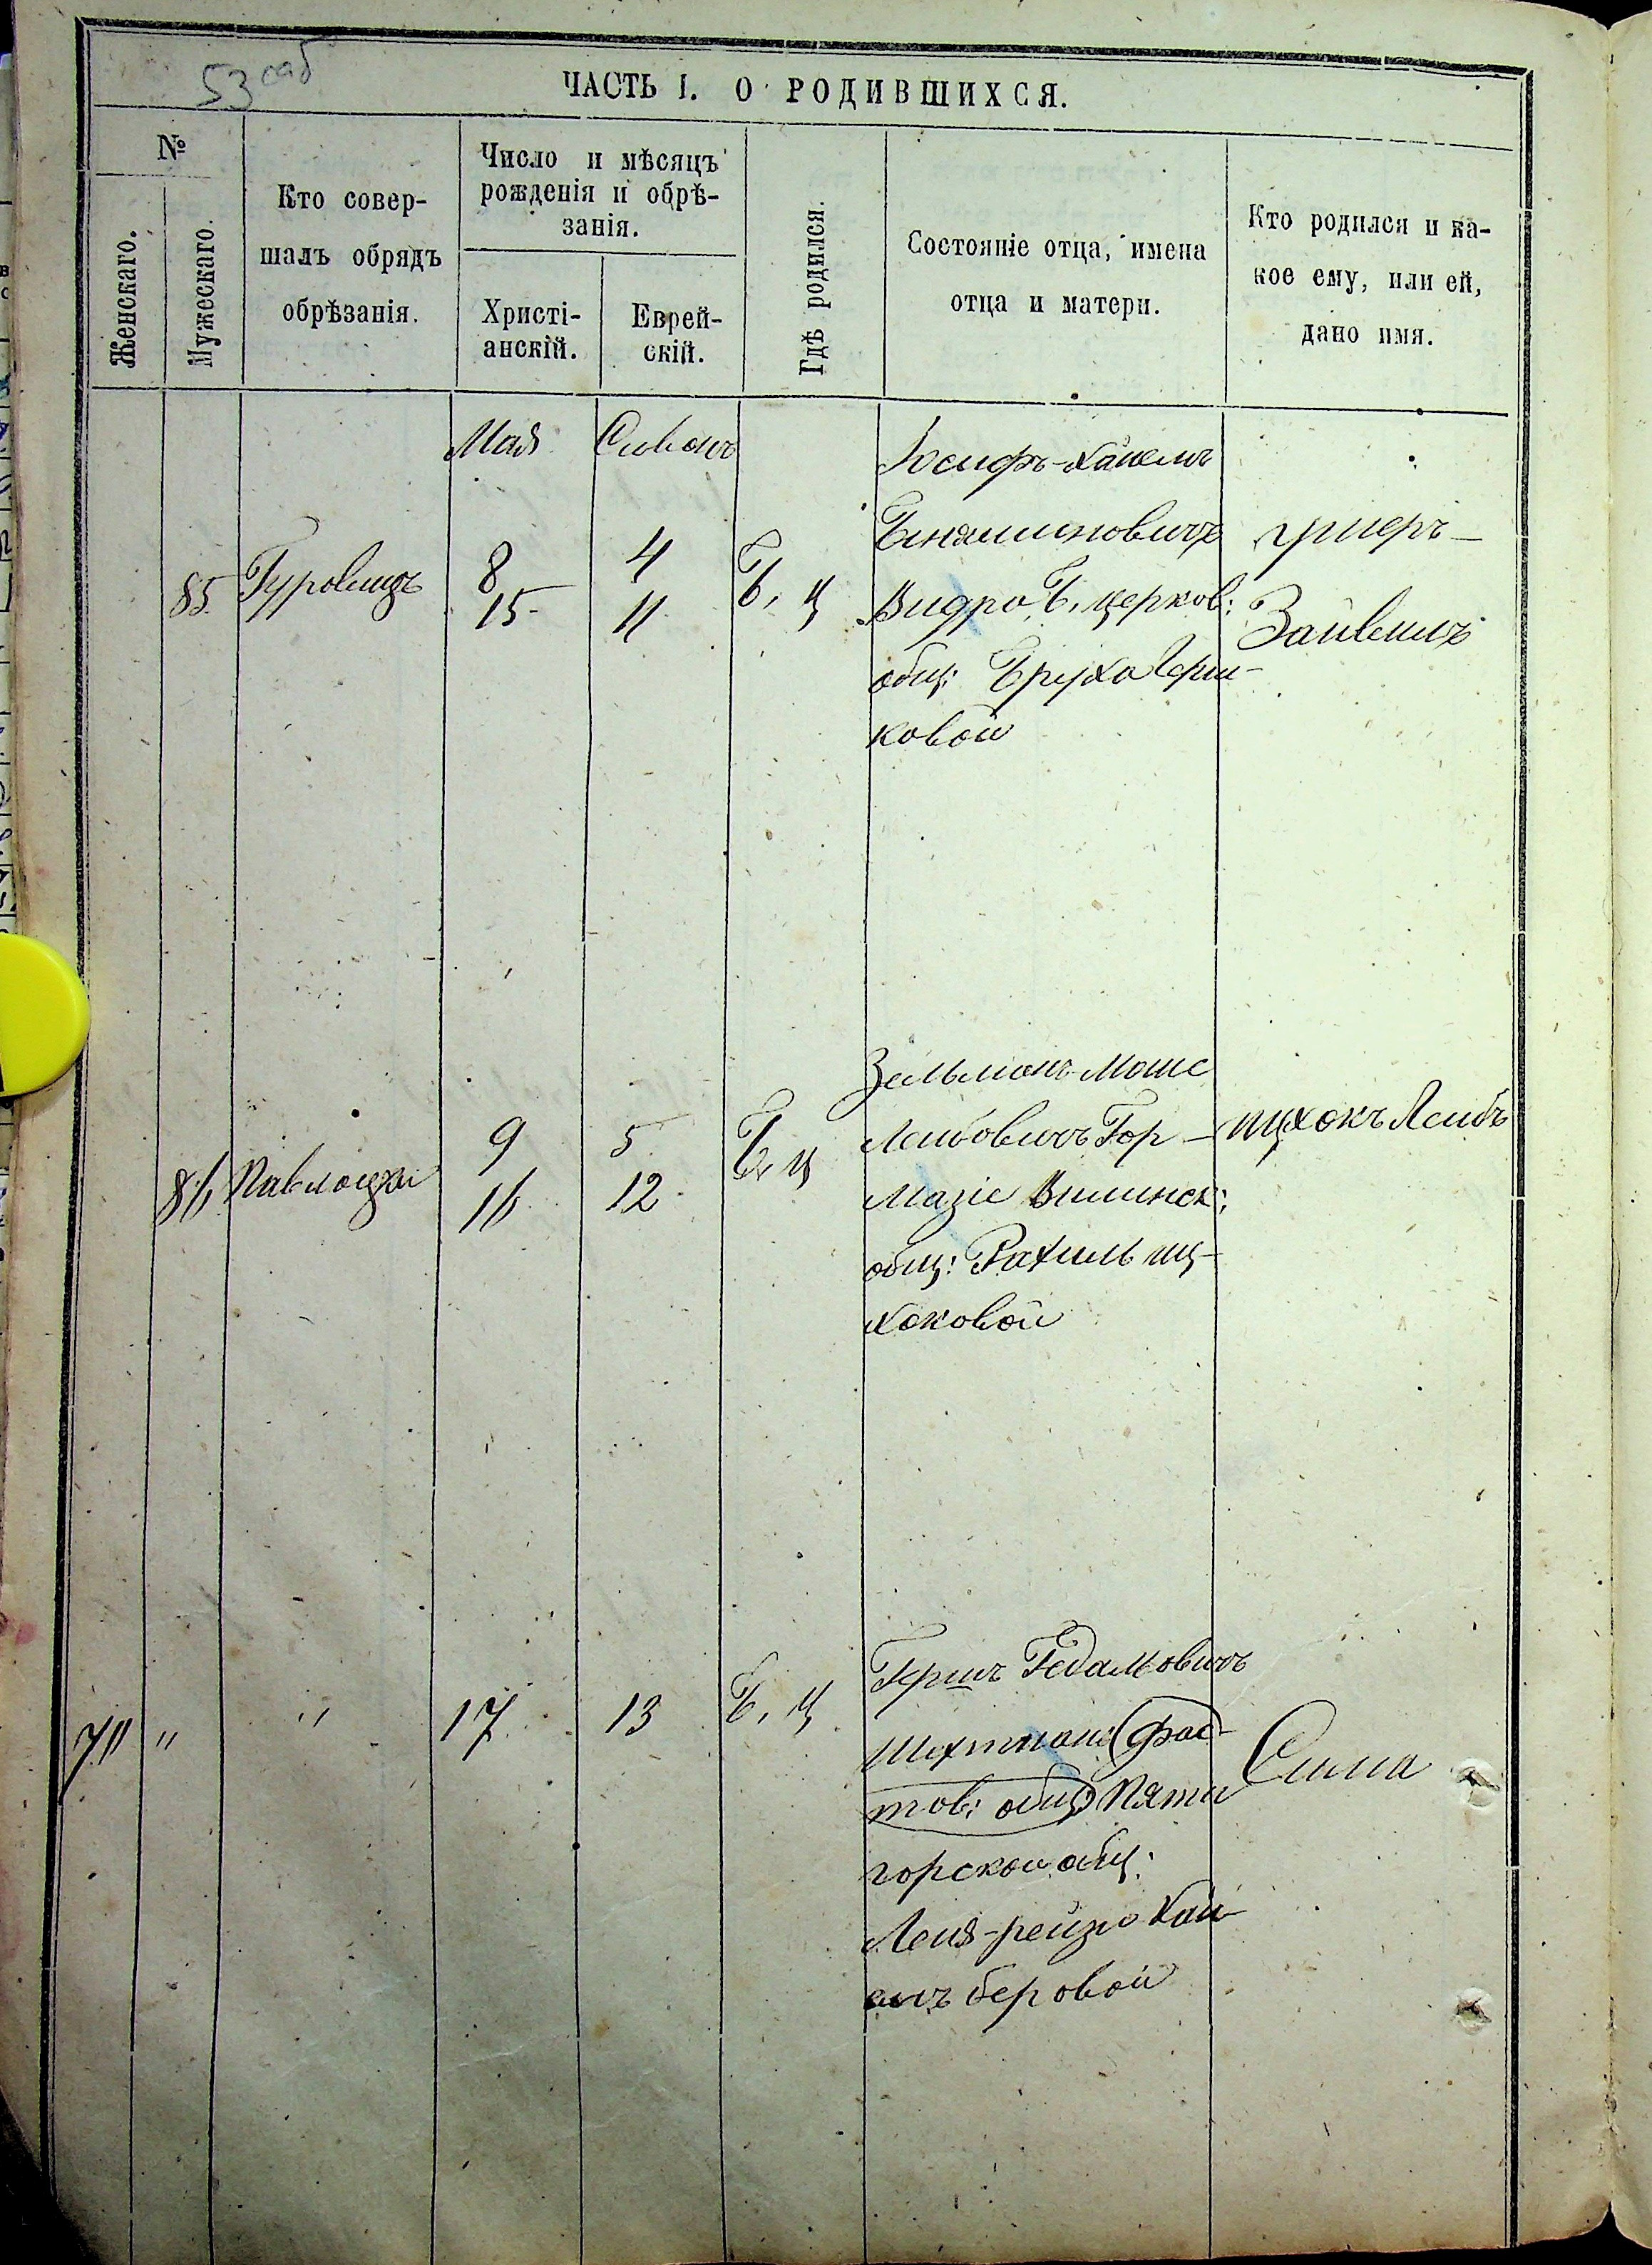 53 об
ЧАСТЬ I. О РОДИВШИХСЯ.
№
Женскаго.
Мужескаго.
Кто совер-
шалъ обрядъ
обрѣзанія.
Число и мѣсяцъ
рожденія и обрѣ-
занія.
Христі-
анскій.
Еврей-
скій.
Гдѣ родился.
Состояніе отца, имена
отца и матери.
Кто родился и ка-
кое ему, или ей,
дано имя.
Мая
Сивонъ
85
Гуровицъ
8
15
4
11
Б. Ц
Іосифъ-Хаимъ
Беняминовичъ
Видро Б. церков:
общ: Бруха Герш-
ковой
Зайвелъ
86
Павлоцки
9
16
5
12
Б. Ц
Зельманъ Моше
Лейбовичъ Гор-
Мазіе Вилинск:
общ: Рахиль Иц-
хоковой
Ицхокъ Лейбъ
71
"
"
17
13
Б. Ц
Гершъ Гедальовичъ
Шехтманъ (Фас-
тов: общ) Пяти
горской общ:
Лея-рейзя Хаи
имъ беровой
Сима